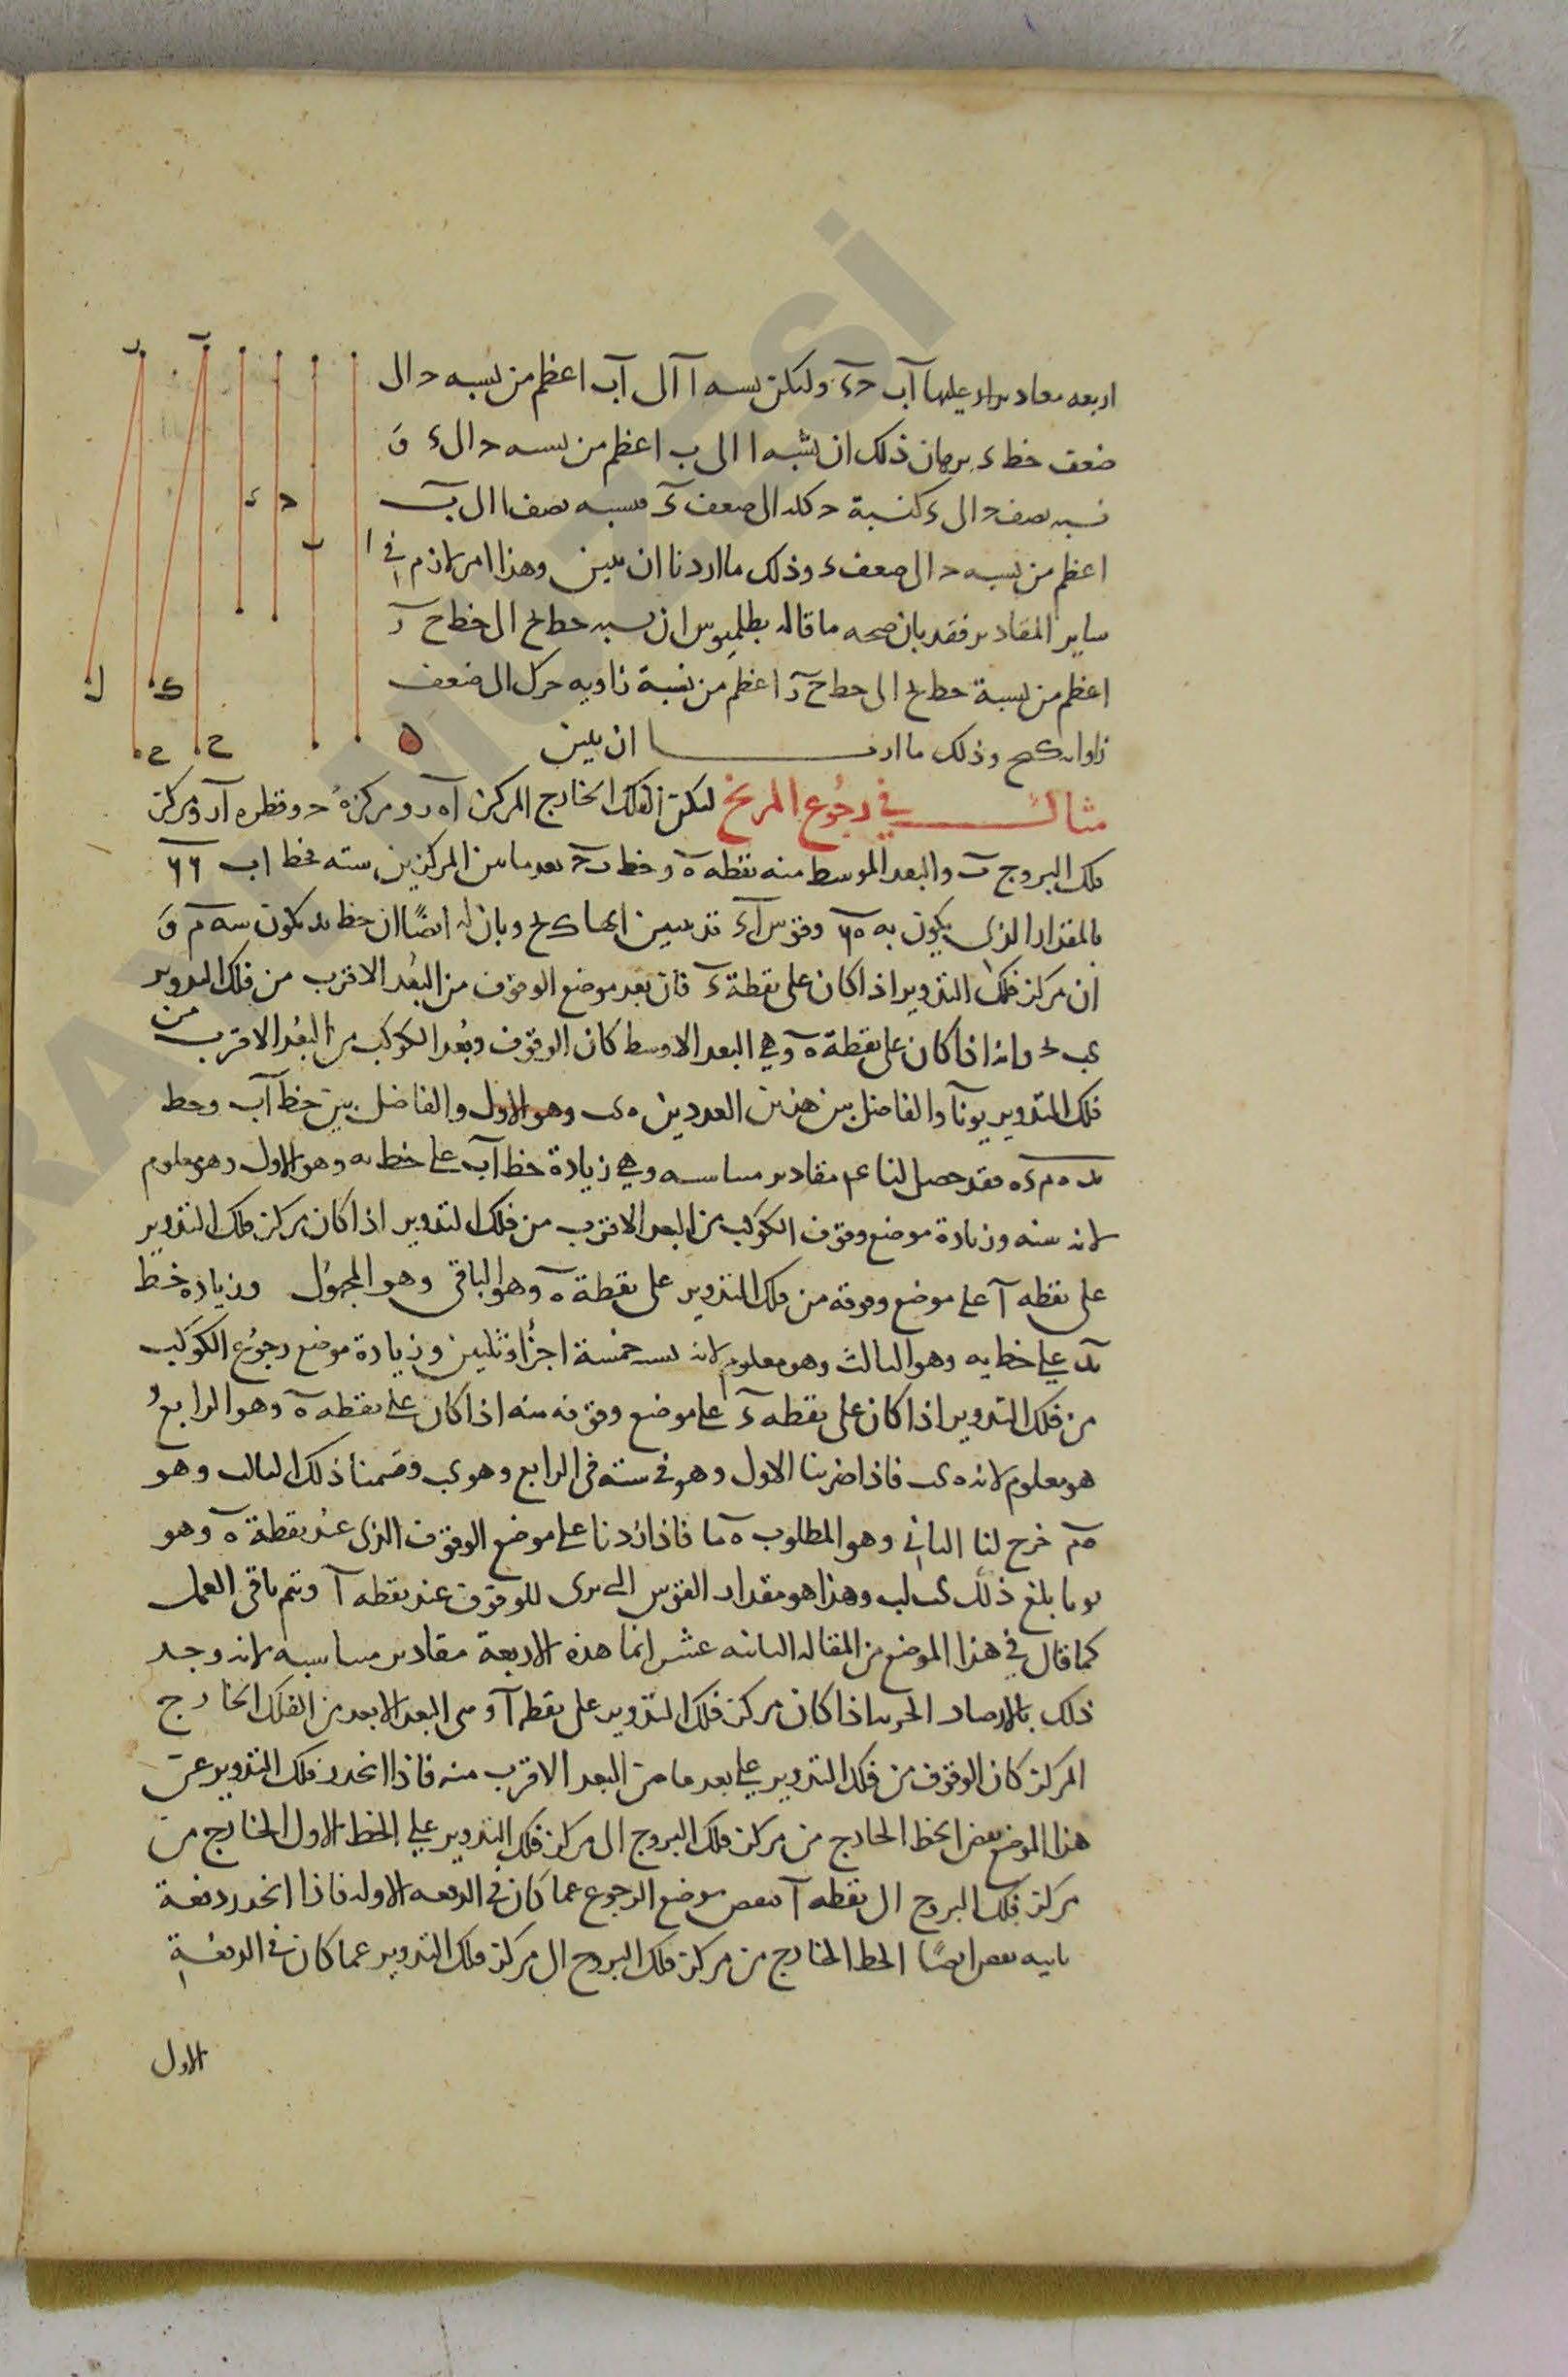 اربعه مقادير اد عليها آب حء ولتكن نسبه آ الى آب اعظم من نسبه ح الى
ضعف خط ء برهان ذلك ان نسبه ا الى ب اعظم من نسبه ح الى ء و
نسبه نصف ح الى ء كنسبة ح كله الى ضعف ء فنسبه نصف ا الى ب
اعظم من نسبه ح الى ضعف ء وذلك ما اردنا ان نبين وهذا امر لازم في
ساير المقادير فقد بان صحه ما قاله بطلميوس ان نسبه خط الى خط ح ر
اعظم من نسبة خط الى خط ح ر اعظم من نسبة زاويه حرك الى ضعف
زاوية وذلك ما اردنا ان نبين
مثال في رجوع المريخ ليكن الفلك الخارج المركز آه ر ومركزه ح وقطره آر ومركز
فلك البروج ب والبعد الموسط منه نقطه ه وخط ب ح بعد ما بين المركزين ستة فخط اب ٦٦
بالمقدار الذى يكون به ٦٠ وقوس آء قد تبين انها وبان له ايضًا ان خط بد يكون سه م و
ان مركز فلك التدوير اذا كان على نقطة ء فان بعد موضع الوقوف من البُعد الاقرب من فلك التدوير
وانه اذا كان على نقطة ه وهي البعد الاوسط كان الوقوف وبُعد الكوكب من البُعد الاقرب من
فلك التدوير يونآ والفاضل بين هذين العددين ه ى وهو الاول والفاضل بين خط آب وخط
فقد حصل لنا مقادير متناسبه وهي زيادة خط آب على خط به وهو الاول وهو معلوم
لانه سته وزيادة موضع وقوف الكوكب من البعد الاقرب من فلك التدوير اذا كان مركز فلك التدوير
على نقطه آ على موضع وقوفه من فلك التدوير على نقطة ه وهو الباقى وهو المجهول وزياده خط
بد على خط به وهو الثالث وهو معلوم لانه نسبه خمسة اجزًا وثلثين وزيادة موضع رجوع الكوكب
من فلك التدوير اذا كان على نقطه ء على موضع وقوفه منه اذا كان على نقطه ه وهو الرابع
هو معلوم لانه ه ى فاذا ضربنا الاول وهو في ستة فى الرابع وهو وقسمنا ذلك الثالث وهو
ه م خرج لنا الثاني وهو المطلوب فاذا زدنا على موضع الوقوف الذى عند نقطة ه وهو
يونا بلغ ذلك وهذا هو مقدار القوس التى يرى للوقوف عند نقطه آ وتم باقى العمل
كما قال في هذا الموضع من المقاله الثانيه عشر انما هذه الاربعة مقادير متناسبه لانه وجد
ذلك بالارصاد اذا كان مركز فلك التدوير على نقطه آ وهى البعد الابعد من الفلك الخارج
المركز كان الوقوف من فلك التدوير على بعد ما من البعد الاقرب منه فاذا انحدر فلك التدوير عن
هذا الموضع نقص الخط الخارج من مركز فلك البروج الى مركز فلك التدوير على الخط الاول الخارج من
مركز فلك البروج الى نقطه آ نقص موضع الرجوع عما كان في الدفعه الاوله فاذا انحدر دفعة
ثانيه نقص ايضًا الخط الخارج من مركز فلك البروج الى مركز فلك التدوير عما كان في الدفعة
الاول